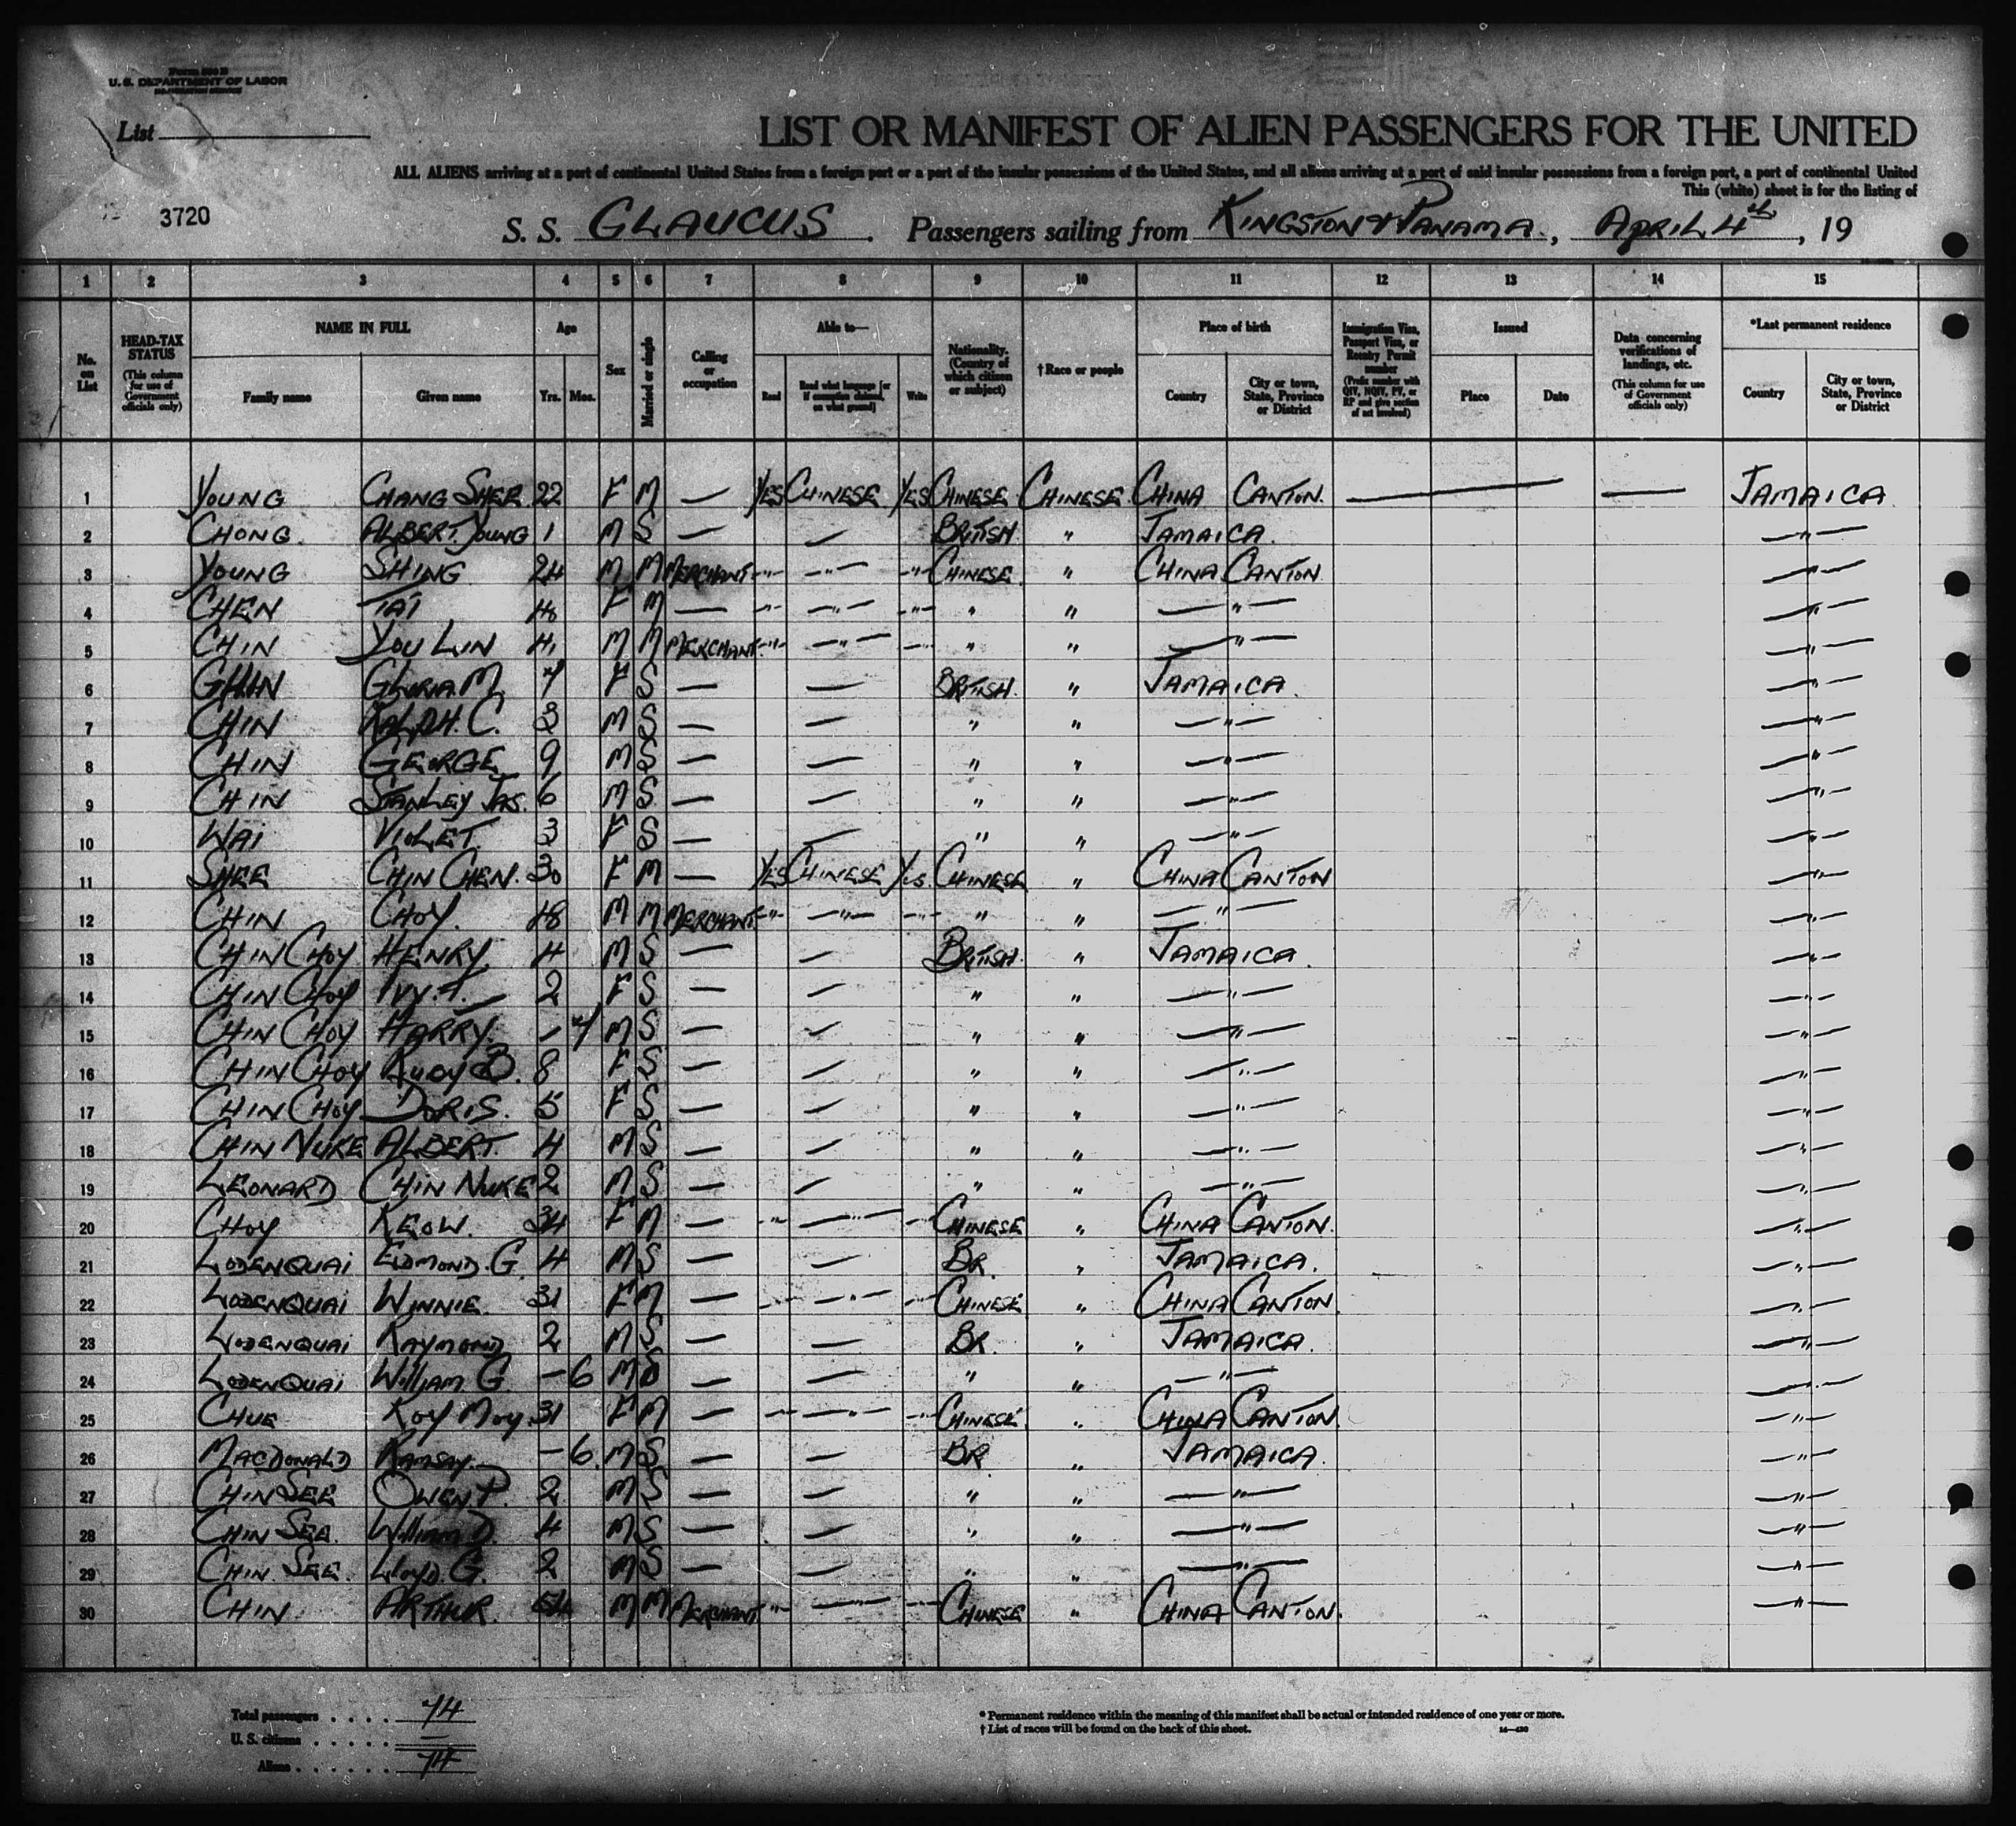 Form 500 B
U. S. DEPARTMENT OF LABOR
List
LIST OR MANIFEST OF ALIEN PASSENGERS FOR THE UNITED
ALL ALIENS arriving at a port of continental United States from a foreign port or a port of the insular possessions of the United States, and all aliens arriving at a port of said insular possessions from a foreign port, a port of continental United
This (white) sheet is for the listing of
3720
S. S. GLAUCUS. Passengers sailing from KINGSTON & PANAMA., APRIL 4th, 19
1 2 3 4 5 6 7 8 9 10 11 12 13 14 15
No. on List
HEAD-TAX STATUS (This column for use of Government officials only)
NAME IN FULL Family name Given name
Age Yrs. Mos.
Sex
Married or single
Calling or occupation
Able to— Read Read what language [or if exemption claimed, on what ground] Write
Nationality. (Country of which citizen or subject)
† Race or people
Place of birth Country City or town, State, Province or District
Immigration Visa, Passport Visa, or Reentry Permit number (Prefix number with QIV, NQIV, PV, or RP and give section of act involved)
Issued Place Date
Data concerning verifications of landings, etc. (This column for use of Government officials only)
*Last permanent residence Country City or town, State, Province or District
1 YOUNG CHANG SHEE 22 F M — YES CHINESE YES CHINESE CHINESE CHINA CANTON. — — JAMAICA
2 CHONG. ALBERT YOUNG 1 M S — — BRITISH " JAMAICA. "
3 YOUNG SHING 24 M M MERCHANT " " " CHINESE " CHINA CANTON "
4 CHEN TAI 40 F M — " " " " " " "
5 CHIN YOU LUN 41 M M MERCHANT " " " " " " "
6 CHIN GLORIA M. 7 F S — — BRITISH. " JAMAICA. "
7 CHIN RALPH. C. 3 M S — — " " " "
8 CHIN GEORGE 9 M S — — " " " "
9 CHIN STANLEY JAS. 6 M S — — " " " "
10 WAI VIOLET. 3 F S — — " " " "
11 SHEE CHIN CHEN. 30 F M — YES CHINESE YES. CHINESE " CHINA CANTON "
12 CHIN CHOY. 48 M M MERCHANT " " " " " " "
13 CHIN CHOY HENRY 4 M S — — BRITISH. " JAMAICA. "
14 CHIN CHOY IVY. T. 2 F S — — " " " "
15 CHIN CHOY HARRY. — 7 M S — — " " " "
16 CHIN CHOY RUBY B. 8 F S — — " " " "
17 CHIN CHOY DORIS. 5 F S — — " " " "
18 CHIN NUKE ALBERT. 4 M S — — " " " "
19 LEONARD CHIN NUKE 2 M S — — " " " "
20 CHOY KEOW. 34 F M — " " " CHINESE " CHINA CANTON. "
21 LODENQUAI EDMOND. G 4 M S — — BR. " JAMAICA. "
22 LODENQUAI WINNIE. 31 F M — " " " CHINESE " CHINA CANTON. "
23 LODENQUAI RAYMOND 2 M S — — BR. " JAMAICA. "
24 LODENQUAI WILLIAM. G. — 6 M S — — " " " "
25 CHUE KOY MOY. 31 F M — " " " CHINESE. " CHINA CANTON. "
26 MACDONALD RAMSAY. — 6. M S — — BR. " JAMAICA. "
27 CHIN SEE OWEN P. 2 M S — — " " " "
28 CHIN SEE. WILLIAM D. 4 M S — — " " " "
29 CHIN. SEE. LLOYD. G. 2 M S — — " " " "
30 CHIN ARTHUR. M M MERCHANT. " " " CHINESE " CHINA CANTON. "
Total passengers . . . . 74
U. S. citizens . . . . . —
Aliens . . . . . . 74
* Permanent residence within the meaning of this manifest shall be actual or intended residence of one year or more.
† List of races will be found on the back of this sheet.